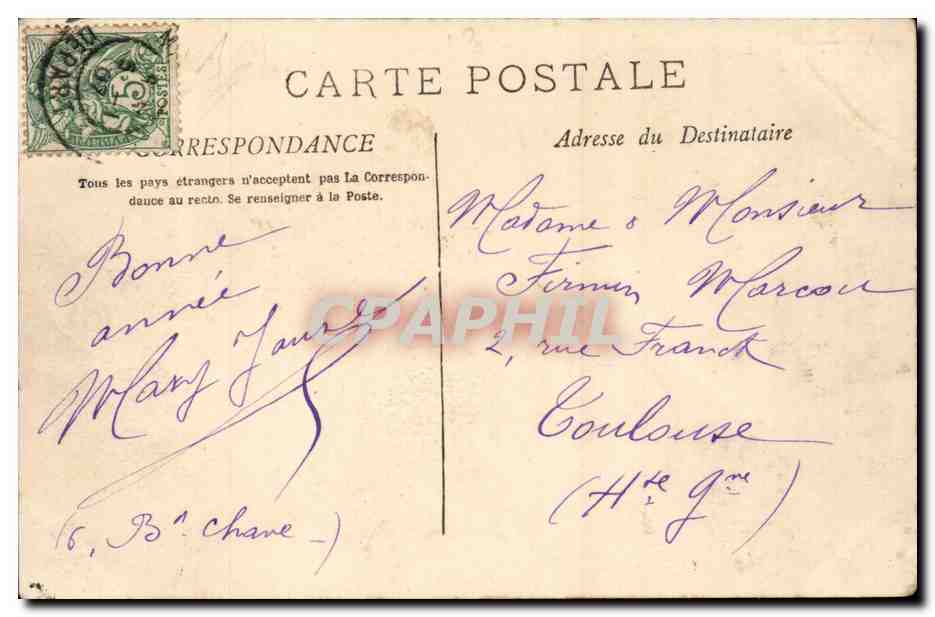 CARTE POSTALE
CORRESPONDANCE
Tous les pays étrangers n'acceptent pas La Correspon-
dance au recto. Se renseigner à la Poste.
Bonne
année
Mary
(6, Bⁿ Chave -)
Adresse du Destinataire
Madame & Monsieur
Firmin Marcou
2, rue Franck
Toulouse
(Hte Gne)
5
POSTES
DEPART
CPAPHIL